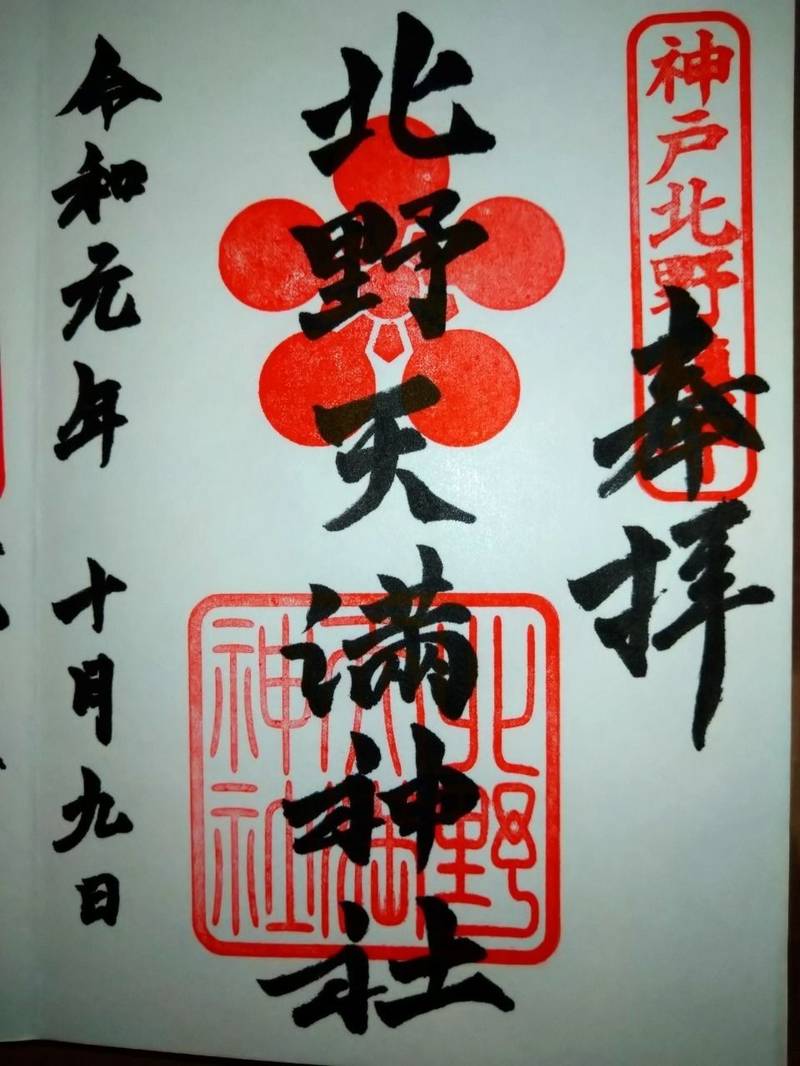 神戸北野
奉拝
北野天満神社
北野天満神社
令和元年 十月九日